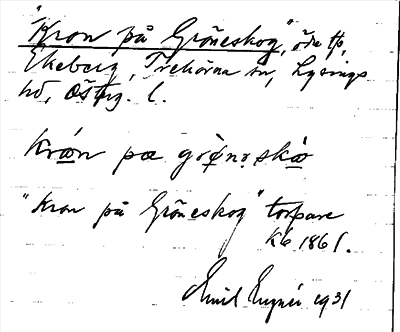 "Kron på Gröneskog", öde tp,
Ekeberg, Trehörna sn, Lysings
hd, Östg. l.
krøn pæ grø̀no skò
"Kron på Gröneskog" torpare
k6 1861.
Emil Engnér 1931